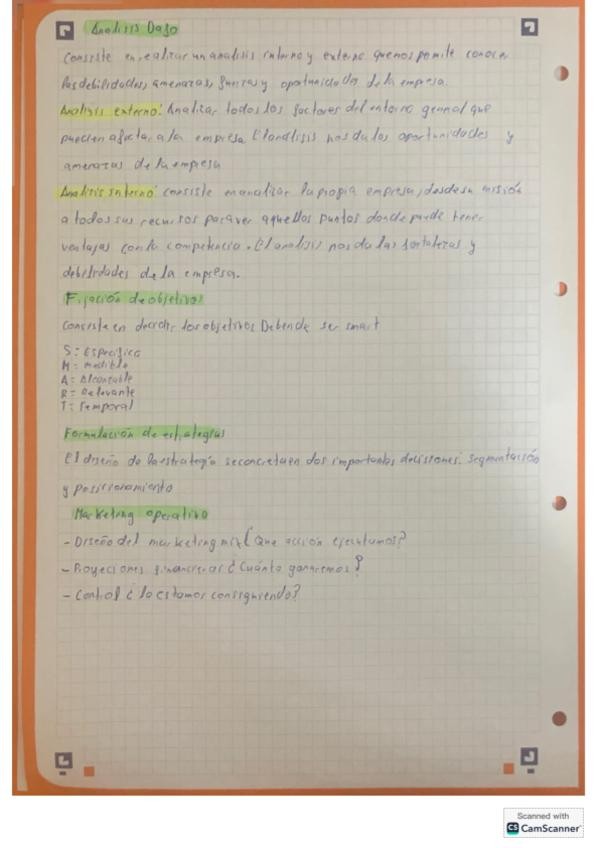 Analisis Dafo
Consiste en realizar un analisis interno y externo que nos permite conocer
las debilidades, amenazas, fuerzas y oportunidades de la empresa.
Analisis externo: Analizar todos los factores del entorno general que
pueden afectar a la empresa El analisis nos da las oportunidades y
amenazas de la empresa
Analisis interno: consiste en analizar la propia empresa, desde su misión
a todos sus recursos para ver aquellos puntos donde puede tener
ventajas con la competencia. El analisis nos da las fortalezas y
debilidades de la empresa.
Fijación de objetivos
Consiste en decidir los objetivos Deben de ser smart
S: Especifico
M: medible
A: Alcanzable
R: Relevante
T: Temporal
Formulación de estrategias
El diseño de la estrategia se concreta en dos importantes decisiones: segmentación
y posicionamiento
Marketing operativo
- Diseño del marketing mix ¿Que acción ejecutamos?
- Proyeciones financieras ¿Cuánto ganaremos?
- Control ¿lo estamos consiguiendo?
Scanned with
CS CamScanner